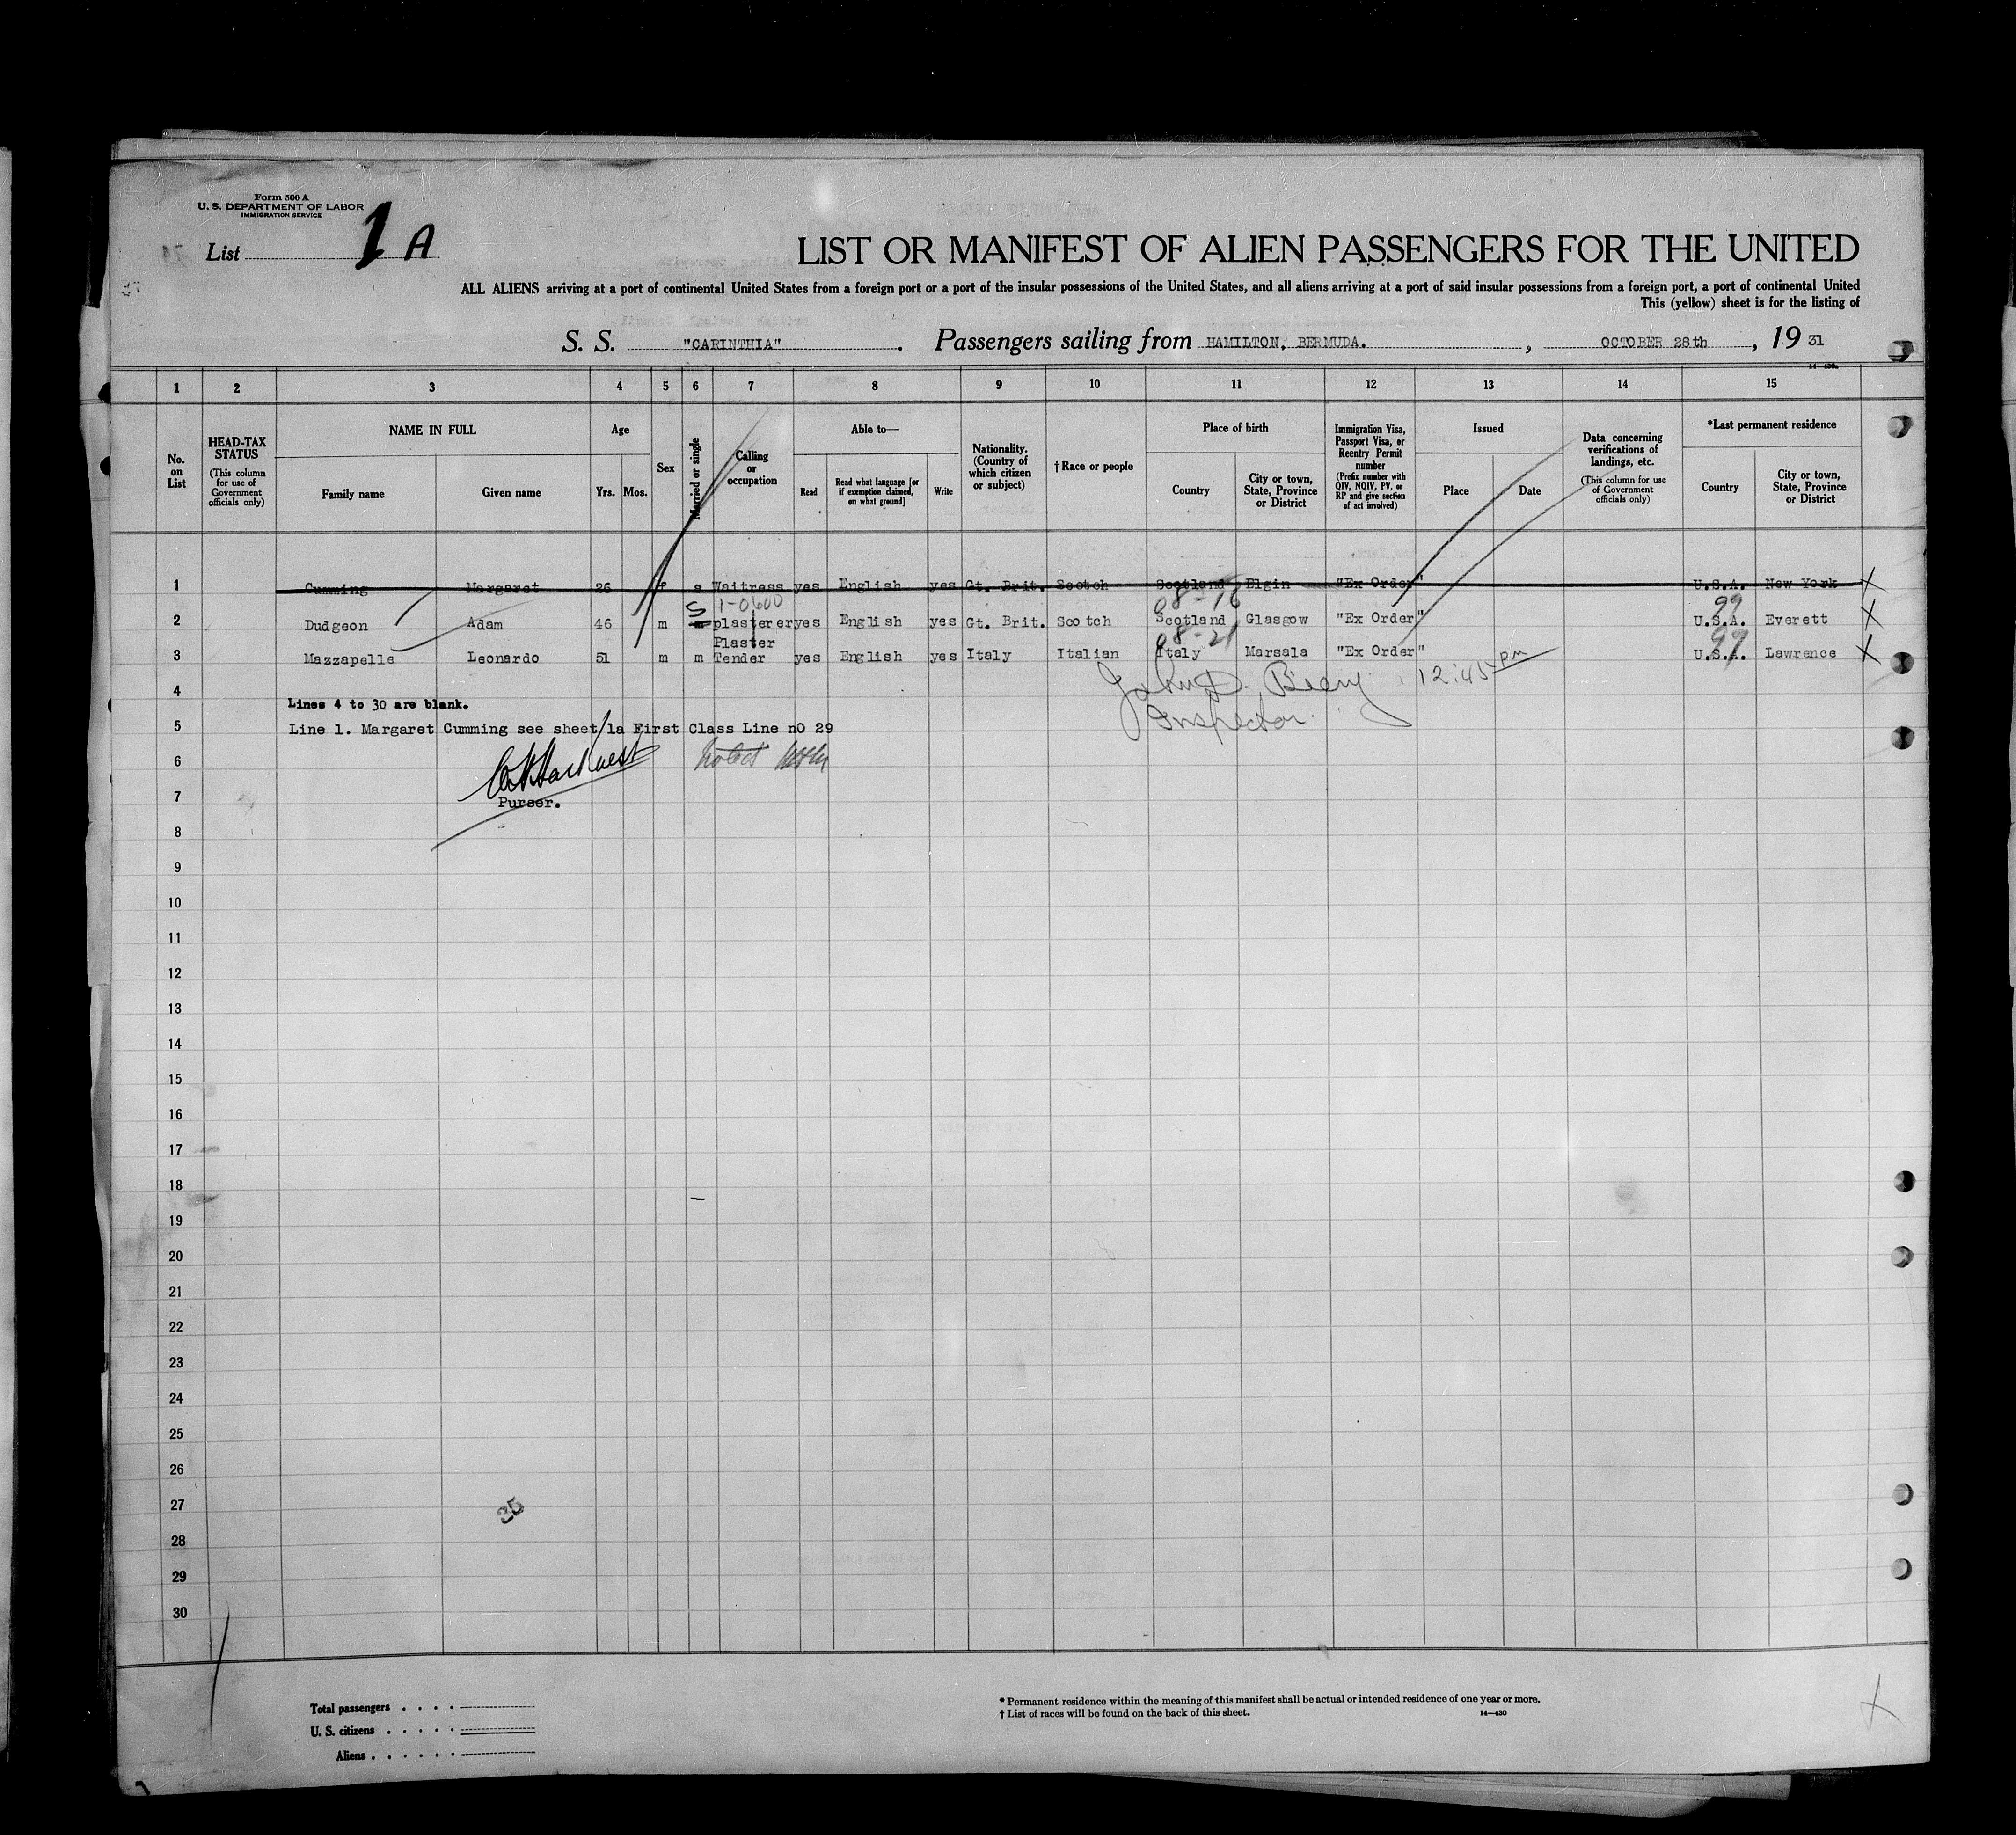 Form 500 A
U. S. DEPARTMENT OF LABOR
IMMIGRATION SERVICE
List 1 A
LIST OR MANIFEST OF ALIEN PASSENGERS FOR THE UNITED
ALL ALIENS arriving at a port of continental United States from a foreign port or a port of the insular possessions of the United States, and all aliens arriving at a port of said insular possessions from a foreign port, a port of continental United
This (yellow) sheet is for the listing of
S. S. "CARINTHIA". Passengers sailing from HAMILTON, BERMUDA. , OCTOBER 28th , 19 31
14—430a
1 2 3 4 5 6 7 8 9 10 11 12 13 14 15
No. on List
HEAD-TAX STATUS
(This column for use of Government officials only)
NAME IN FULL
Family name
Given name
Age
Yrs. Mos.
Sex
Married or single
Calling or occupation
Able to—
Read
Read what language [or if exemption claimed, on what ground]
Write
Nationality. (Country of which citizen or subject)
† Race or people
Place of birth
Country
City or town, State, Province or District
Immigration Visa, Passport Visa, or Reentry Permit number
(Prefix number with QIV, NQIV, PV, or RP and give section of act involved)
Issued
Place
Date
Data concerning verifications of landings, etc.
(This column for use of Government officials only)
*Last permanent residence
Country
City or town, State, Province or District
1 Cumming Margaret 26 f s Waitress yes English yes Gt. Brit. Scotch Scotland Elgin "Ex Order" U.S.A. New York X
S 1-0600 08-16 99
2 Dudgeon Adam 46 m m plasterer yes English yes Gt. Brit. Scotch Scotland Glasgow "Ex Order" U.S.A. Everett X
Plaster 08-21 99
3 Mazzapelle Leonardo 51 m m Tender yes English yes Italy Italian Italy Marsala "Ex Order" U.S.A. Lawrence X
John D. 12:45 PM
4
Lines 4 to 30 are blank.
Inspector.
5 Line 1. Margaret Cumming see sheet 1a First Class Line nO 29
6
7
Purser.
8
9
10
11
12
13
14
15
16
17
18
19
20
21
22
23
24
25
26
27
35
28
29
30
Total passengers . . . .
U. S. citizens . . . . .
Aliens . . . . . .
* Permanent residence within the meaning of this manifest shall be actual or intended residence of one year or more.
† List of races will be found on the back of this sheet.
14—430
X